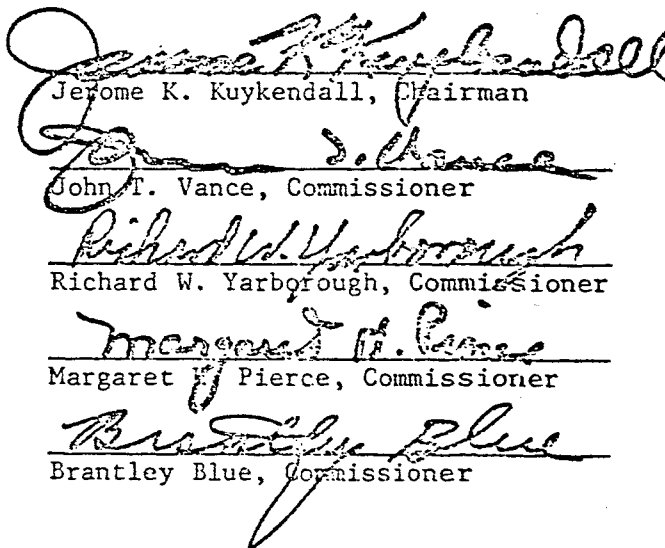 Jerome K. Kuykendall
Jerome K. Kuykendall, Chairman
John T. Vance
John T. Vance, Commissioner
Richard W. Yarborough
Richard W. Yarborough, Commissioner
Margaret H. Pierce
Margaret H. Pierce, Commissioner
Brantley Blue
Brantley Blue, Commissioner